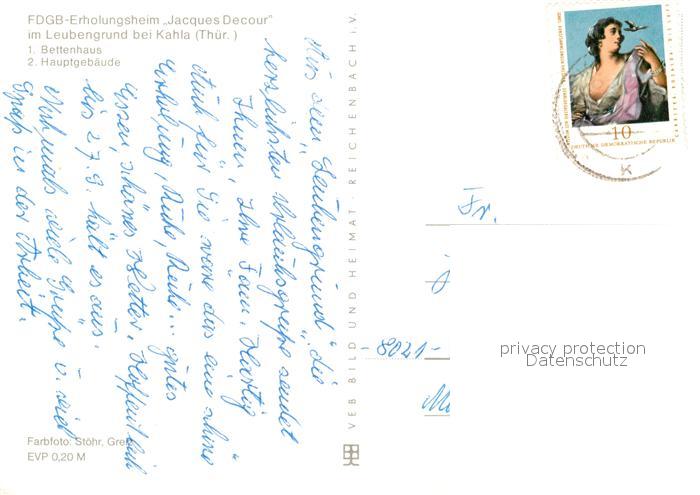 FDGB-Erholungsheim „Jacques Decour"
im Leubengrund bei Kahla (Thür. )
1. Bettenhaus
2. Hauptgebäude
Aus dem „Leubengrund" die
herzlichsten Urlaubsgrüße sendet
Ihnen, Ihre Fam. Hartig
Auch für Sie wäre das eine schöne
Erholung, Ruhe, Ruhe... gutes
Essen schönes Wetter. Hoffentlich
bis 27.9. hält es aus.
Nochmals viele Grüße u. viel
Spaß in der Arbeit.
Farbfoto: Stöhr, Greiz
EVP 0,20 M
VEB BILD UND HEIMAT · REICHENBACH i.V.
10
DEUTSCHE DEMOKRATISCHE REPUBLIK
Fr.
-8021-
privacy protection
Datenschutz